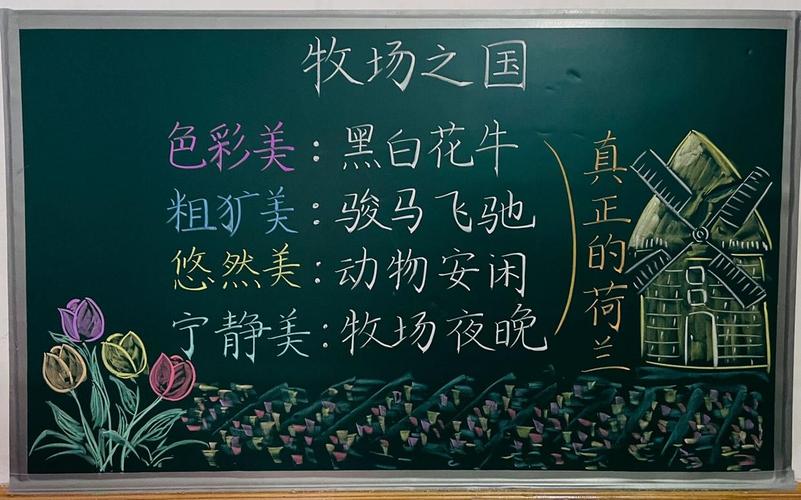 牧场之国
色彩美:黑白花牛
粗犷美:骏马飞驰
悠然美:动物安闲
宁静美:牧场夜晚
真正的荷兰